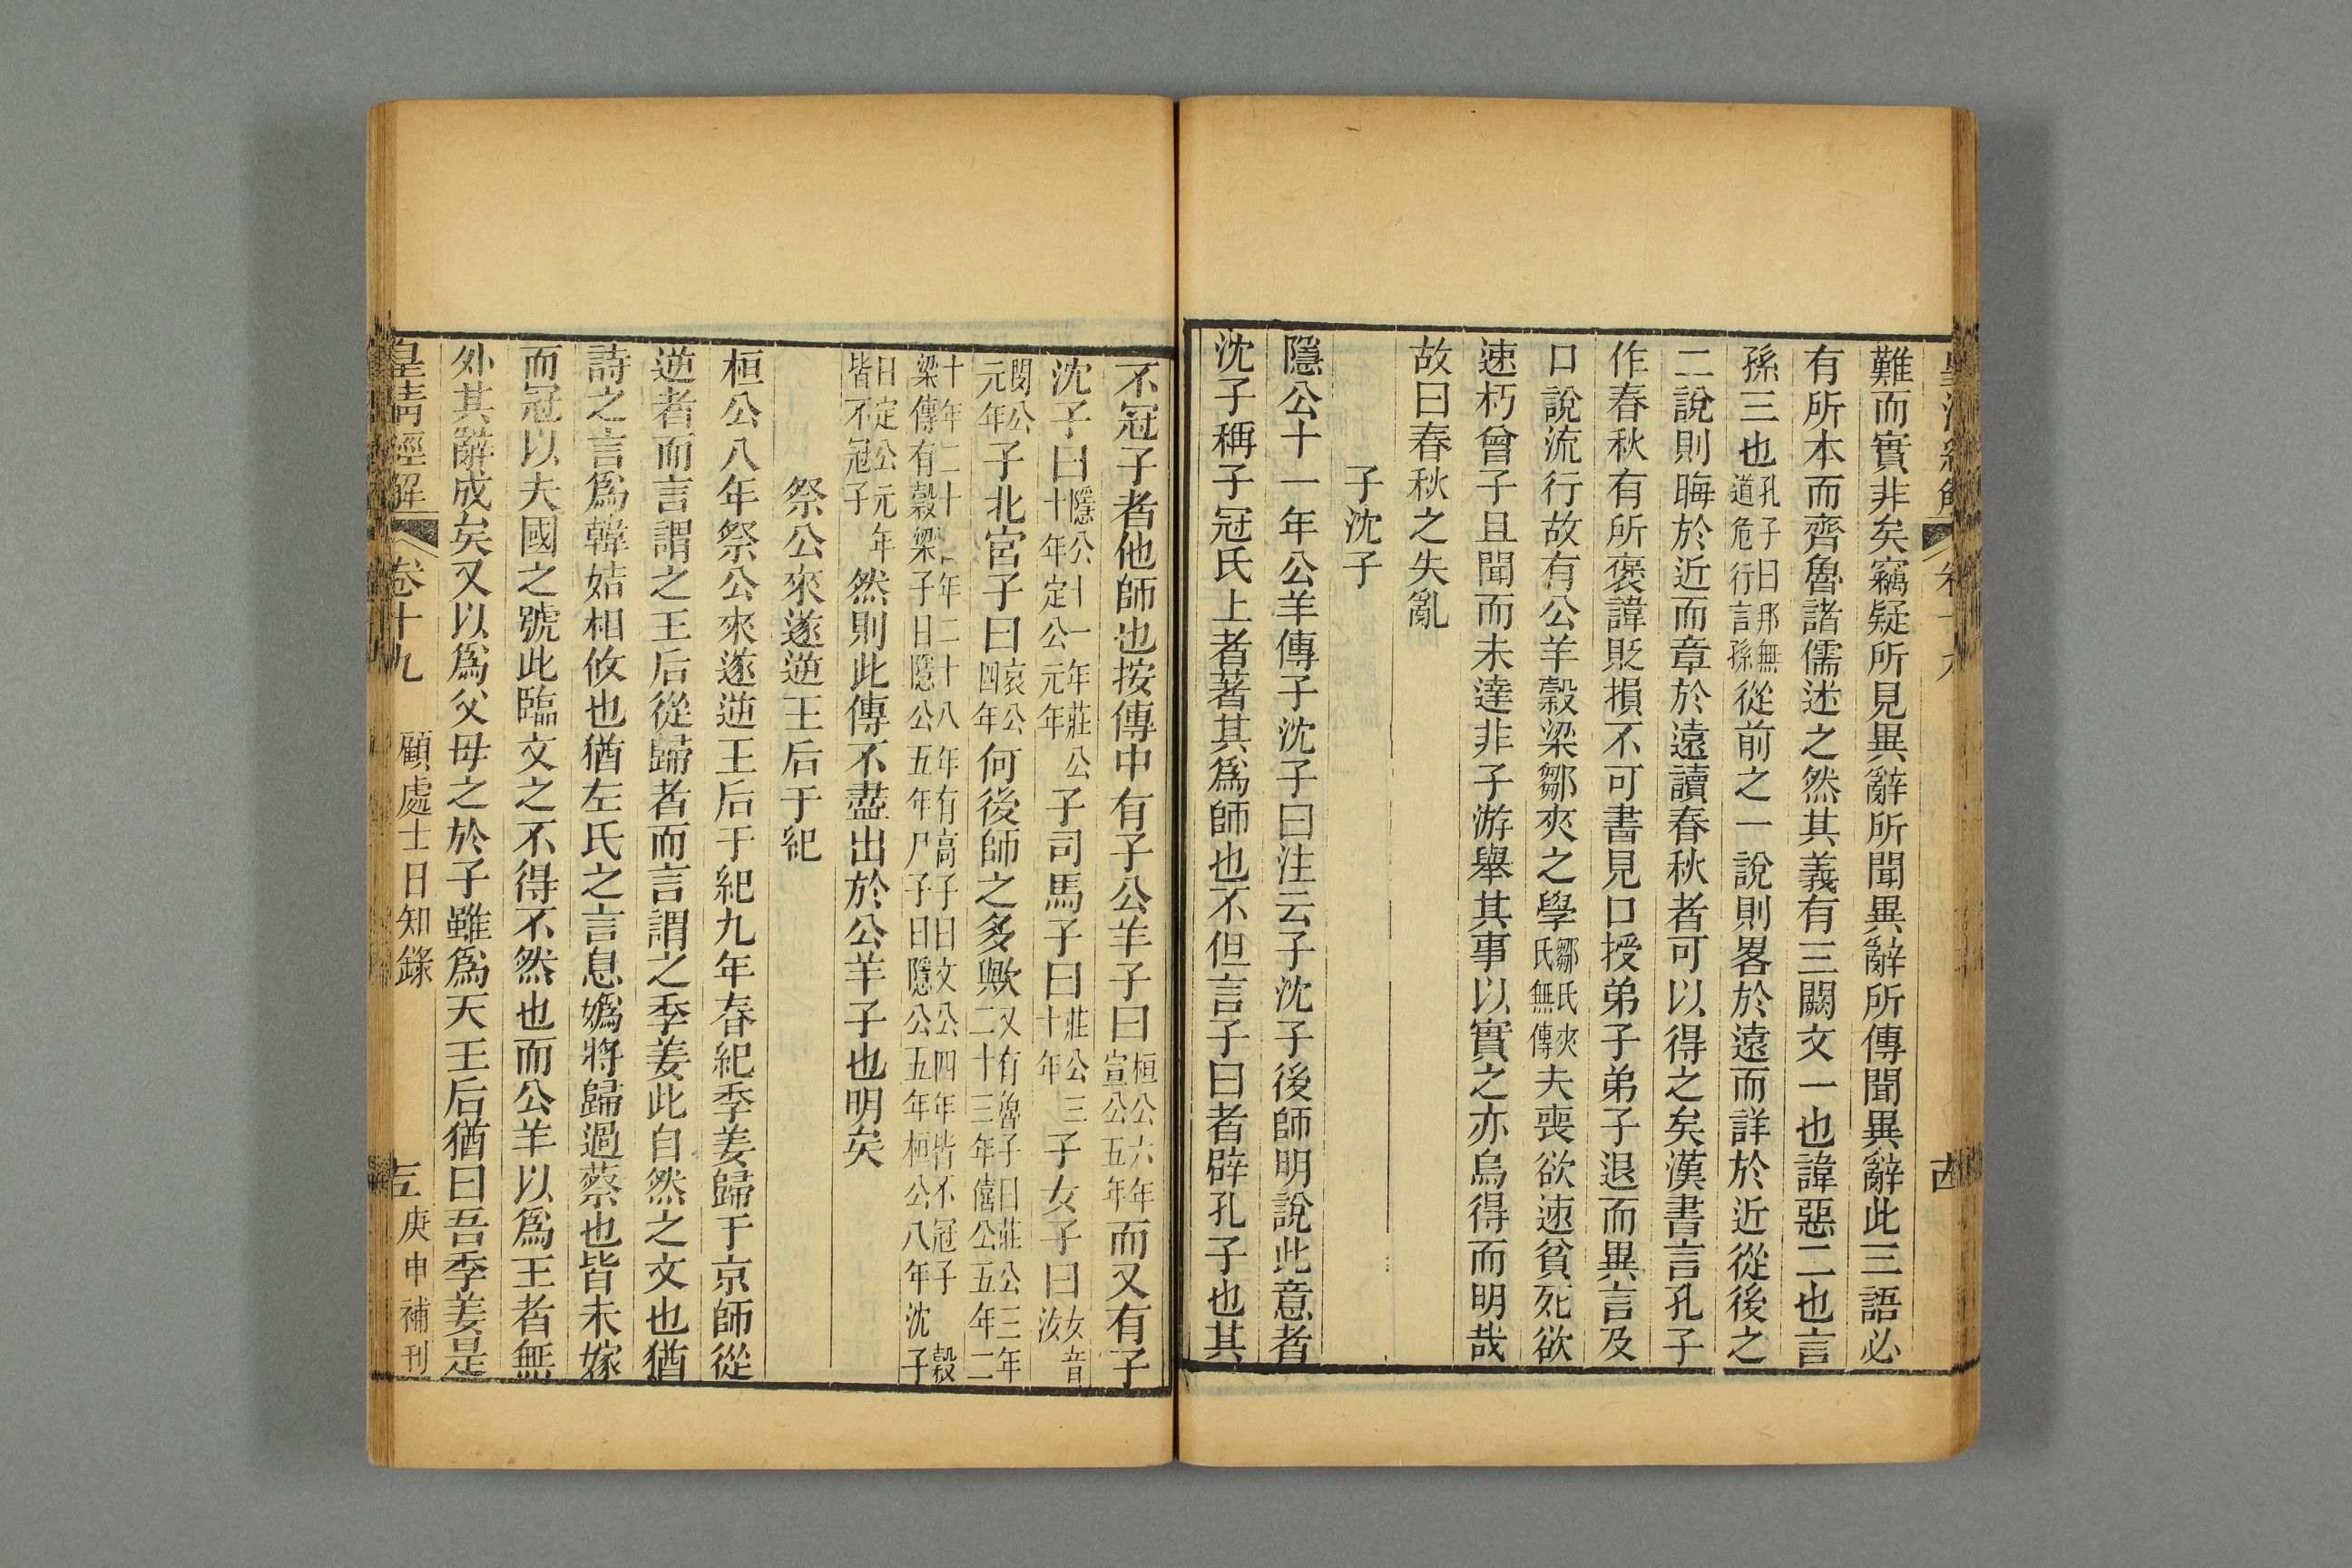 難而實非矣竊疑所見異辭所聞異辭所傳聞異辭此三語必
有所本而齊魯諸儒述之然其義有三闕文一也諱惡二也言
孫三也孔子曰邦無道危行言孫從前之一說則畧於遠而詳於近從後之
二說則晦於近而章於遠讀春秋者可以得之矣漢書言孔子
作春秋有所褒諱貶損不可書見口授弟子弟子退而異言及
口說流行故有公羊穀梁鄒夾之學鄒氏夾氏無傳夫喪欲速貧死欲
速朽曾子且聞而未達非子游舉其事以實之亦烏得而明哉
故曰春秋之失亂
子沈子
隱公十一年公羊傳子沈子曰注云子沈子後師明說此意者
沈子稱子冠氏上者著其爲師也不但言子曰者辟孔子也其
不冠子者他師也按傳中有子公羊子曰桓公六年宣公五年而又有子
沈子曰隱公十一年莊公十年定公元年子司馬子曰莊公三十年子女子曰女音汝
閔公元年子北宮子曰哀公四年何後師之多歟又有魯子曰莊公三年二十三年僖公五年二
十年二十年二十八年有高子曰文公四年皆不冠子穀梁傳有穀梁子曰隱公五年尸子曰隱公五年桓公八年沈子
曰定公元年皆不冠子然則此傳不盡出於公羊子也明矣
祭公來遂逆王后于紀
桓公八年祭公來遂逆王后于紀九年春紀季姜歸于京師從
逆者而言謂之王后從歸者而言謂之季姜此自然之文也猶
詩之言爲韓姞相攸也猶左氏之言息嬀將歸過蔡也皆未嫁
而冠以夫國之號此臨文之不得不然也而公羊以爲王者無
外其辭成矣又以爲父母之於子雖爲天王后猶曰吾季姜是
皇清經解 卷十九 顧處士日知錄 庚申補刊